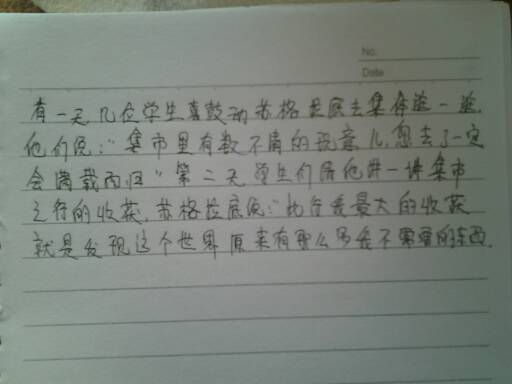 No.
Date
有一天几位学生喜鼓动苏格拉底去集市逛一逛.
他们说:"集市里有数不清的玩意儿,您去了一定
会满载而归"第二天学生们请他讲一讲集市
之行的收获,苏格拉底说:"此行我最大的收获
就是发现这个世界原来有那么多我不需要的东西.